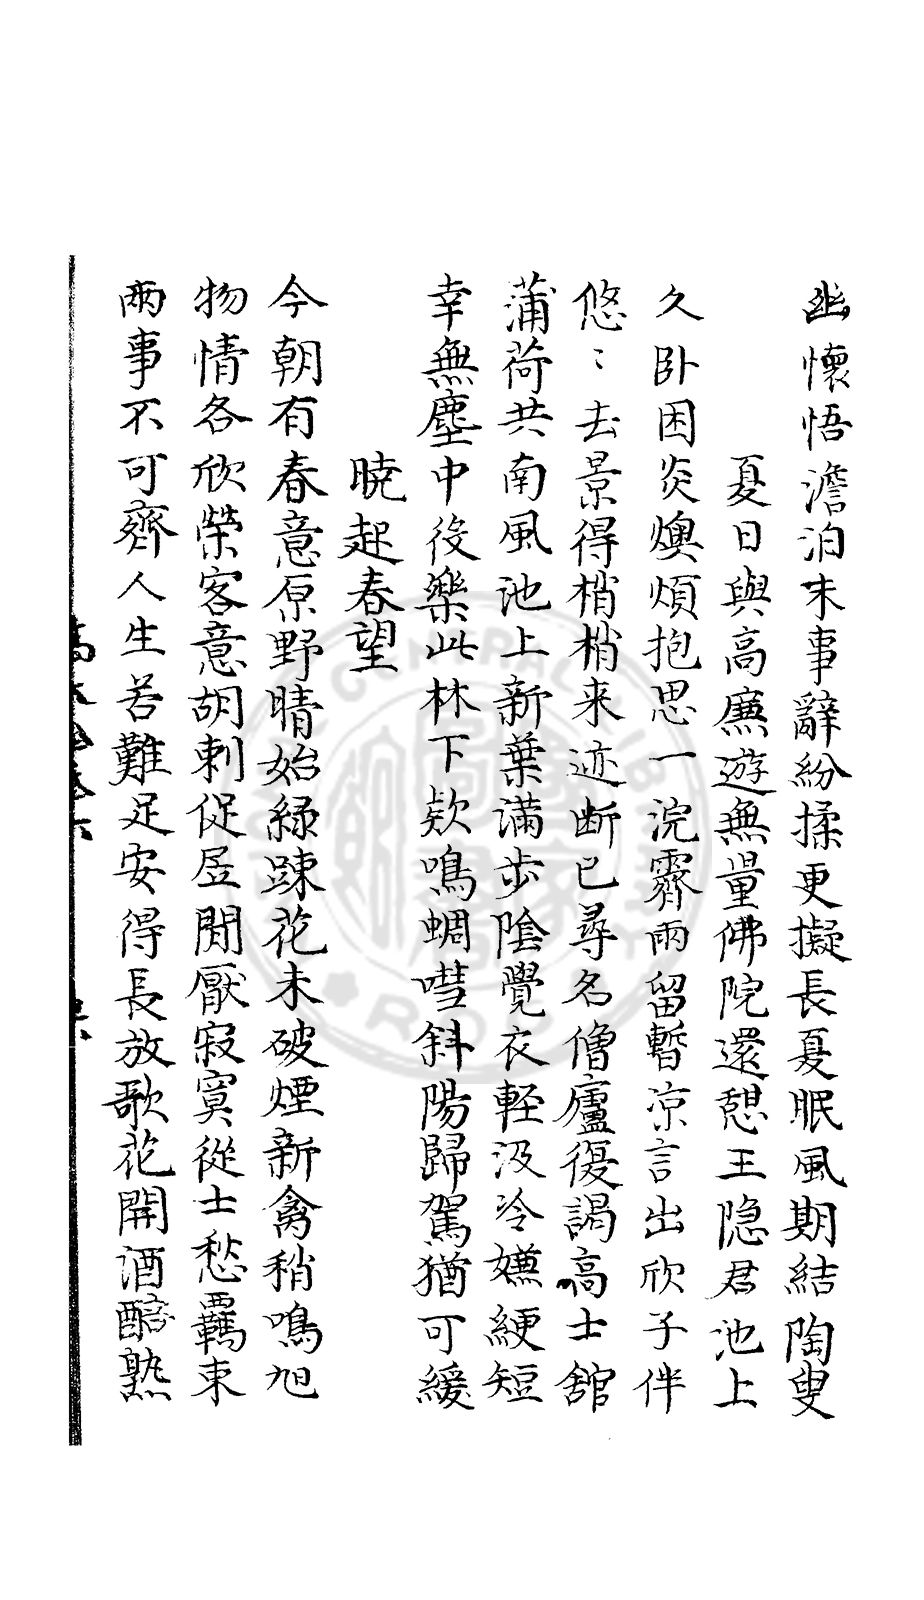 幽懷悟澹泊末事辭紛揉更擬長夏眠風期結陶叟
夏日與高廉遊無量佛院還憩王隐君池上
久卧困炎燠煩抱思一浣霽雨留暫凉言出欣子伴
悠〻去景得梢梢来迹断已尋名僧廬復謁高士舘
蒲荷共南風池上新葉满步陰覺衣軽汲冷嫌綆短
幸無塵中役樂此林下欵鳴蜩嘒斜陽歸駕猶可緩
曉起春望
今朝有春意原野晴始緑踈花未破煙新禽稍鳴旭
物情各欣榮客意胡刺促居閒厭寂寞從士愁羈束
兩事不可齊人生若難足安得長放歌花開酒醅熟